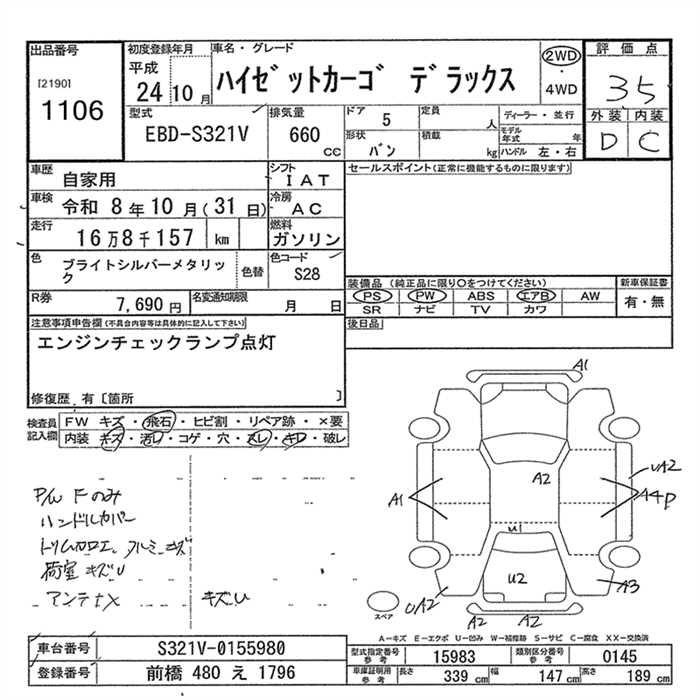 出品番号
[2190]
1106
初度登録年月
平成
24 10 月
車名・グレード
ハイゼットカーゴ デラックス
2WD
・
4WD
評価点
3.5
外装 内装
D C
型式
EBD-S321V
排気量
660 CC
ドア 5
定員 人
形状 バン
積載 kg
ディーラー・並行
モデル年式 年
ハンドル 左・右
車歴 自家用
シフト IAT
車検 令和 8年 10月(31日)
冷房 AC
走行 16万8千157 km
燃料 ガソリン
色 ブライトシルバーメタリック
色替
色コード S28
R券 7,690円
名変通知期限 月 日
セールスポイント(正常に機能するものに限ります)
装備品(純正品に限り○をつけてください)
PS PW ABS エアB AW
SR ナビ TV カワ
新車保証書
有・無
後日品
注意事項申告欄(不具合内容等は具体的に記入して下さい)
エンジンチェックランプ点灯
修復歴 有〔箇所 〕
検査員記入欄
FW キズ・飛石・ヒビ割・リペア跡・×要
内装 キズ・汚レ・コゲ・穴・スレ・キレ・破レ
P/W Fのみ
ハンドルカバー
キズU
荷室 キズU
アンテナX
A1
A2
A1
UA2
A4P
U1
U2
A3
UA2
A2 A2
スペア
A－キズ E－エクボ U－凹み W－補修跡 S－サビ C－腐食 XX－交換済
車台番号 S321V-0155980
登録番号 前橋 480 え 1796
型式指定番号 参考 15983
類別区分番号 参考 0145
車庫証明用 参考 長さ 339 cm 幅 147 cm 高さ 189 cm